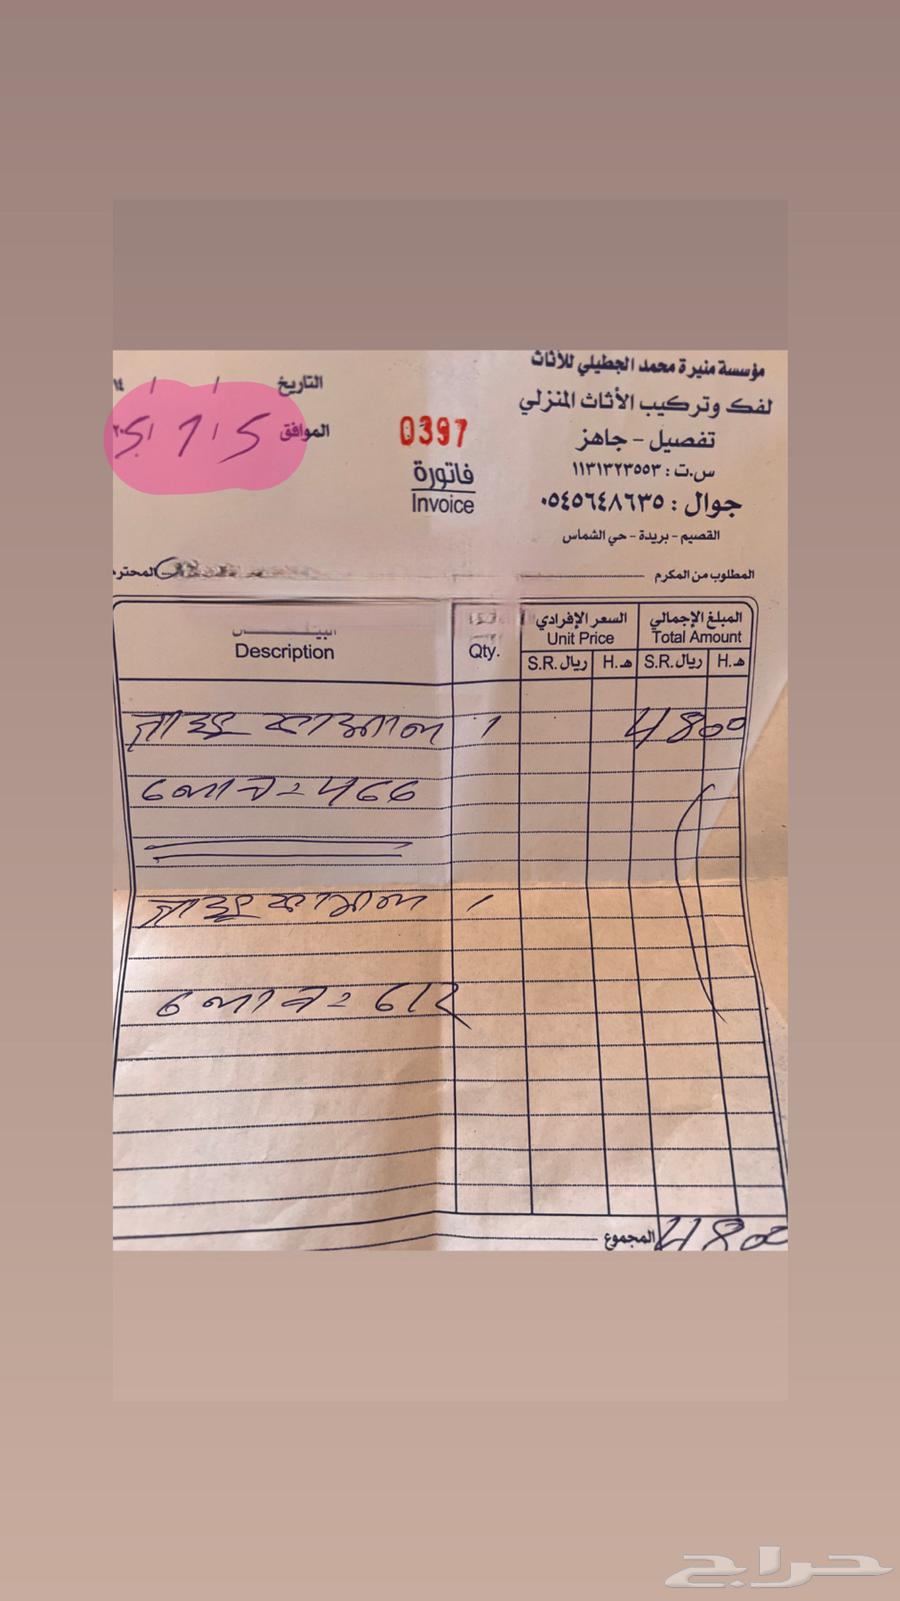 مؤسسة منيرة محمد الجطيلي للأثاث
لفك وتركيب الأثاث المنزلي
تفصيل - جاهز
س.ت : ١١٣١٣٢٣٥٥٣
جوال : ٠٥٤٥٦٤٨٦٣٥
القصيم - بريدة - حي الشماس
0397
فاتورة
Invoice
التاريخ / / ١٤
الموافق 5 / 7 / 5 ٢٠
المطلوب من المكرم المحترم
المبلغ الإجمالي السعر الإفرادي
Description Qty. Unit Price Total Amount
هـ H. ريال S.R. هـ H. ريال S.R.
1 4800
= 466
1
= 612
المجموع 4800
حراج